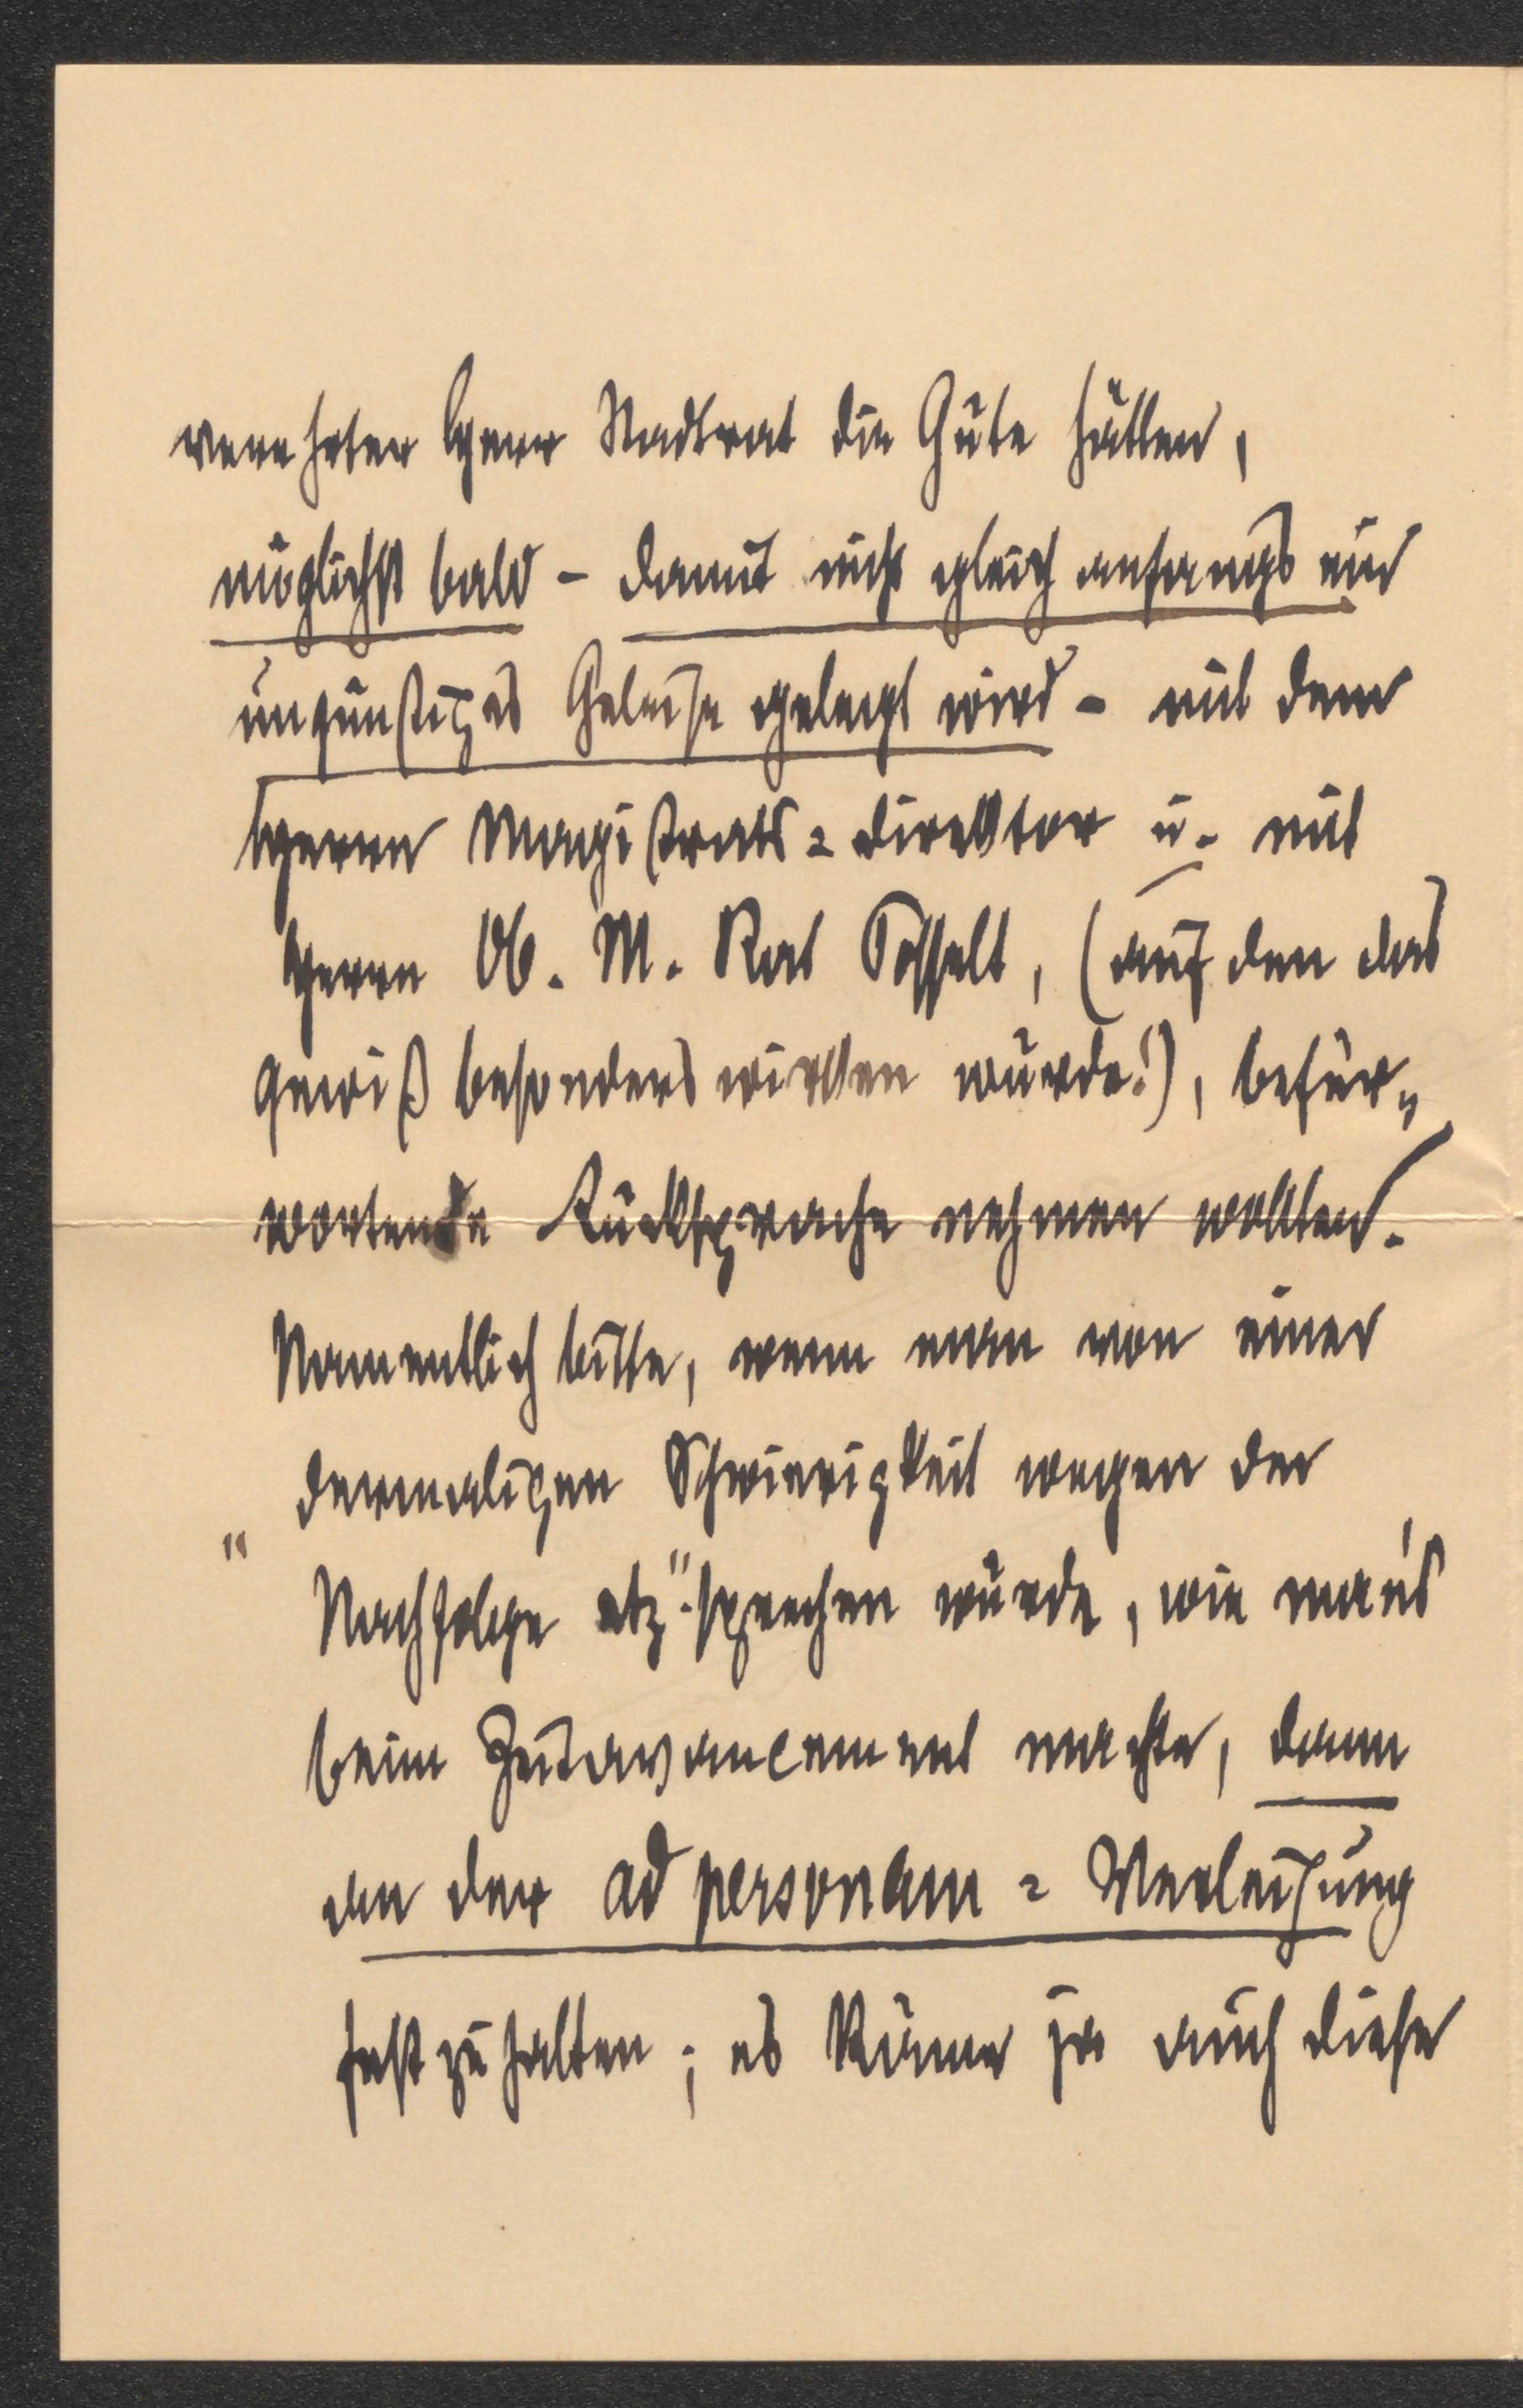 verehrter Herr Stadtrat die Güte hätten,
möglichst bald – damit nicht gleich anfangs ein
ungünstiges Geleise gelegt wird – mit dem
Herrn Magistrats=Direktor u. mit
Herrn Ob. M. Rat Posselt, (auf den das
gewiß besonders wirken würde!), befür„
wortende Rücksprache nehmen wollten.
Namentlich bitte, wenn man von einer
dermaligen Schwierigkeit wegen der
"Nachfolge etz."sprechen würde, wie man's
beim Zeitavancement machte, dann
an der ad personam=Verleihung
festzuhalten; es käme ja auch diese